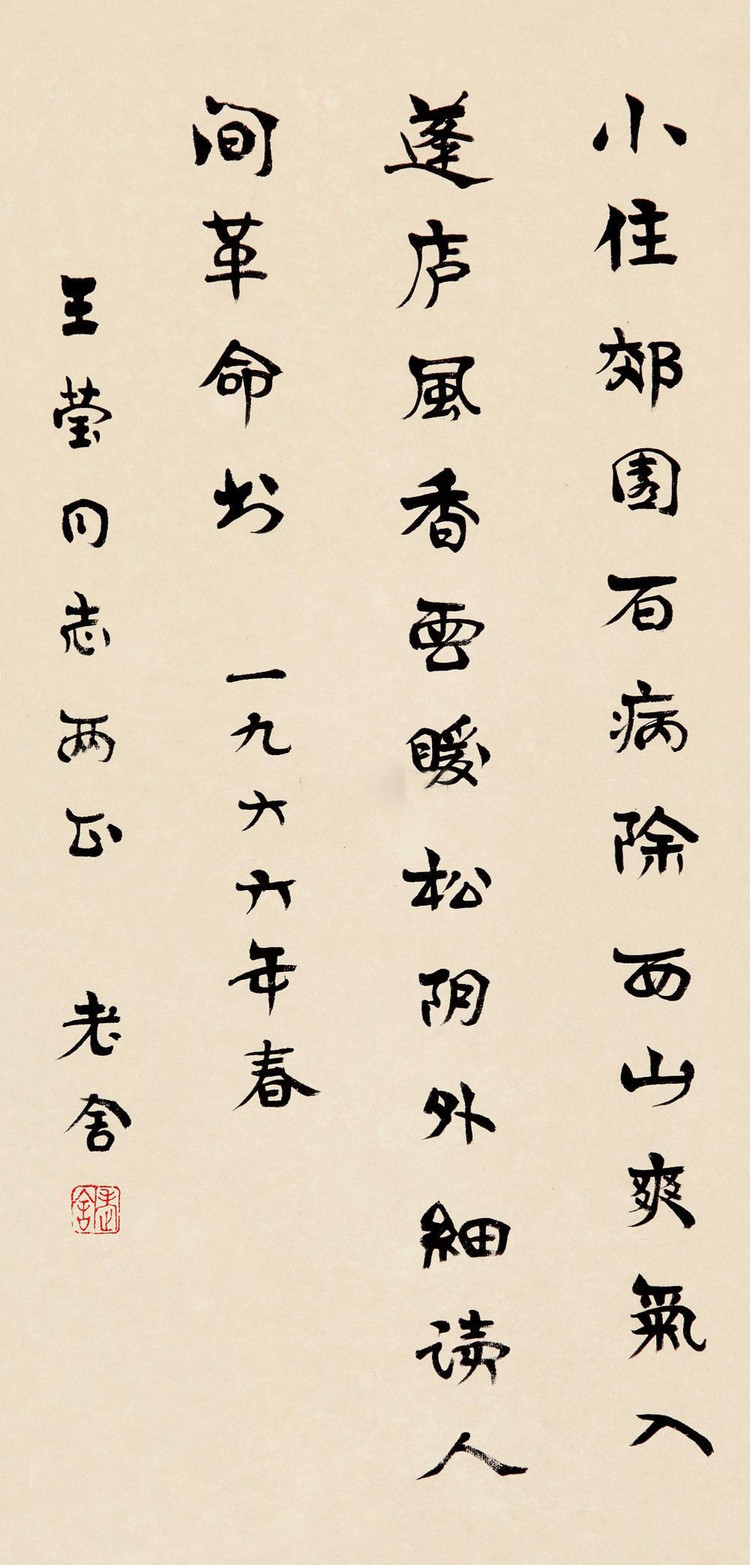 小住郊園百病除西山爽氣入
蓬庐風香雲暖松阴外細读人
间革命书 一九六六年春
王莹同志两正 老舍
老舍